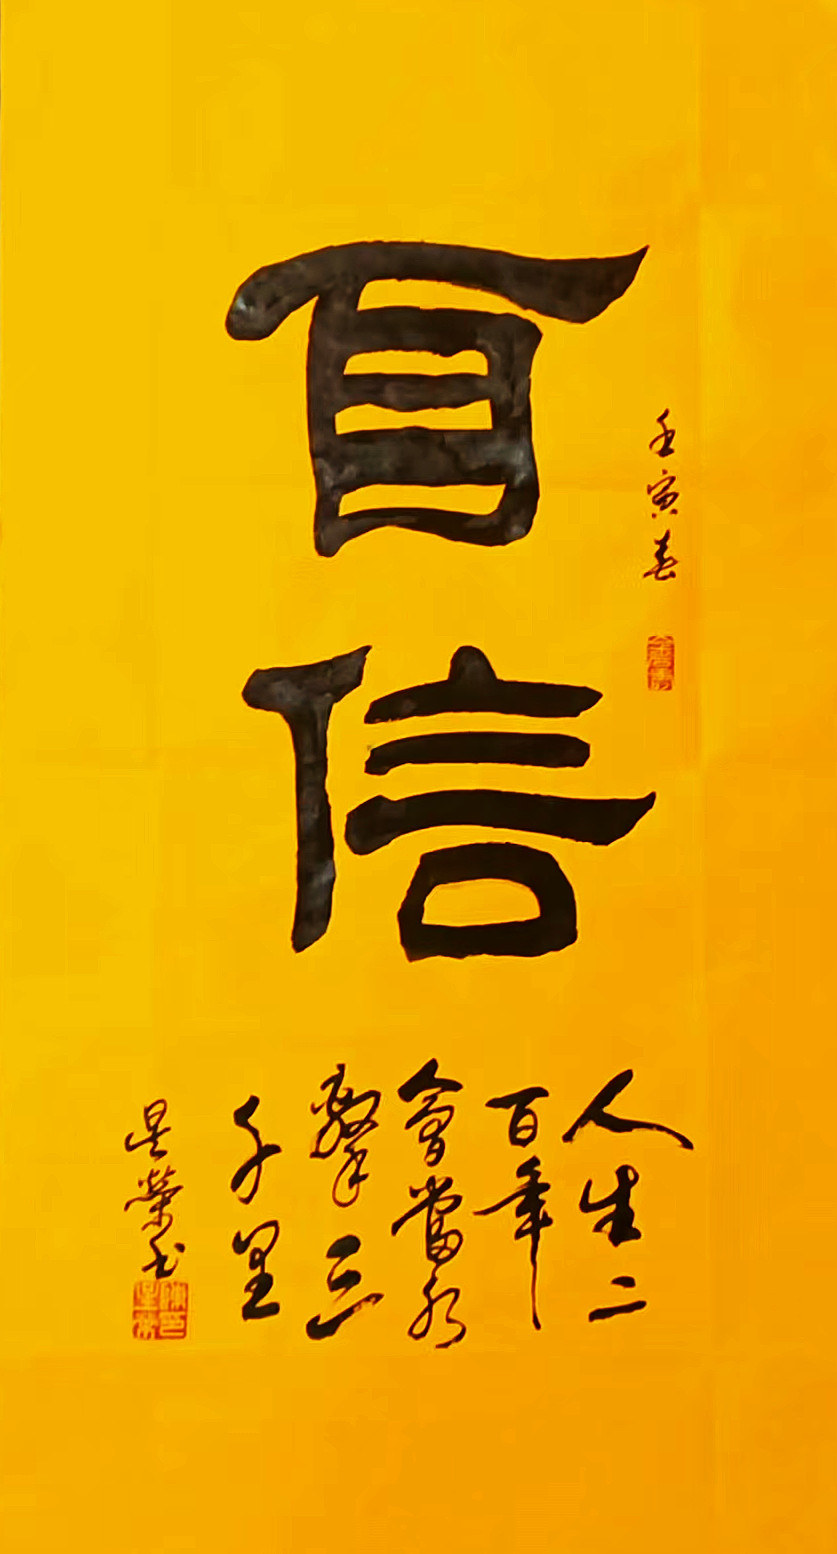 自信
壬寅春
人生二
百年
會當水
擊三
千里
星榮书